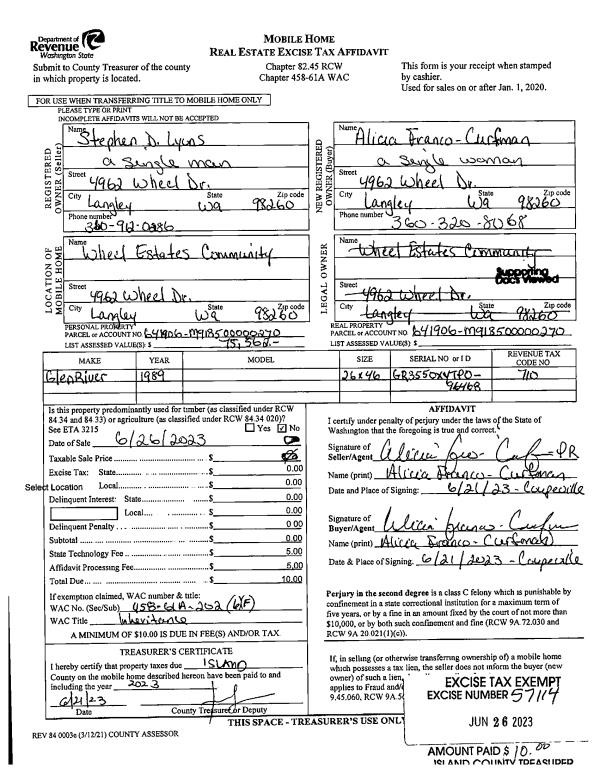 Department of
Revenue
Washington State
MOBILE HOME
REAL ESTATE EXCISE TAX AFFIDAVIT
Submit to County Treasurer of the county
in which property is located.
Chapter 82.45 RCW
Chapter 458-61A WAC
This form is your receipt when stamped
by cashier.
Used for sales on or after Jan. 1, 2020.
FOR USE WHEN TRANSFERRING TITLE TO MOBILE HOME ONLY
PLEASE TYPE OR PRINT
INCOMPLETE AFFIDAVITS WILL NOT BE ACCEPTED
REGISTERED
OWNER (Seller)
Name Stephen D. Lyons
a single man
Street 4962 Wheel Dr.
City Langley State Wa Zip code 98260
Phone number 360-912-0286
NEW REGISTERED
OWNER (Buyer)
Name Alicia Franco-Curfman
a single woman
Street 4962 Wheel Dr.
City Langley State Wa Zip code 98260
Phone number 360-320-8068
LOCATION OF
MOBILE HOME
Name Wheel Estates Community
Street 4962 Wheel Dr.
City Langley State Wa Zip code 98260
LEGAL OWNER
Name Wheel Estates Community
Supporting
Docs Viewed
Street 4962 Wheel Dr.
City Langley State Wa Zip code 98260
PERSONAL PROPERTY
PARCEL or ACCOUNT NO 641906-M918500000270
LIST ASSESSED VALUE(S) $ 75,562.-
REAL PROPERTY
PARCEL or ACCOUNT NO 641906-M918500000270
LIST ASSESSED VALUE(S) $
MAKE YEAR MODEL SIZE SERIAL NO or I D REVENUE TAX CODE NO
GlenRiver 1989 26x46 710
Is this property predominantly used for timber (as classified under RCW
84.34 and 84.33) or agriculture (as classified under RCW 84.34 020)?
See ETA 3215 Yes ✓ No
Date of Sale 6/26/2023
Taxable Sale Price $
Excise Tax: State $ 0.00
Select Location Local $ 0.00
Delinquent Interest: State $ 0.00
Local $ 0.00
Delinquent Penalty $ 0.00
Subtotal $ 0.00
State Technology Fee $ 5.00
Affidavit Processing Fee $ 5.00
Total Due $ 10.00
If exemption claimed, WAC number & title:
WAC No. (Sec/Sub) 458-61A-202 (6)(F)
WAC Title Inheritance
A MINIMUM OF $10.00 IS DUE IN FEE(S) AND/OR TAX.
TREASURER'S CERTIFICATE
I hereby certify that property taxes due ISLAND
County on the mobile home described hereon have been paid to and
including the year 2023
6/21/23
Date County Treasurer or Deputy
AFFIDAVIT
I certify under penalty of perjury under the laws of the State of
Washington that the foregoing is true and correct.
Signature of
Seller/Agent PR
Name (print) Alicia Franco-Curfman
Date and Place of Signing: 6/21/23 - Coupeville
Signature of
Buyer/Agent
Name (print) Alicia Franco-Curfman
Date & Place of Signing. 6/21/23 - Coupeville
Perjury in the second degree is a class C felony which is punishable by
confinement in a state correctional institution for a maximum term of
five years, or by a fine in an amount fixed by the court of not more than
$10,000, or by both such confinement and fine (RCW 9A.72.030 and
RCW 9A 20.021(1)(c)).
If, in selling (or otherwise transferring ownership of) a mobile home
which possesses a tax lien, the seller does not inform the buyer (new
owner) of such a lien,
applies to Fraud and/
9.45.060, RCW 9A.5
EXCISE TAX EXEMPT
EXCISE NUMBER 57114
JUN 26 2023
AMOUNT PAID $ 10.00
ISLAND COUNTY TREASURER
THIS SPACE - TREASURER'S USE ONLY
REV 84 0003e (3/12/21) COUNTY ASSESSOR